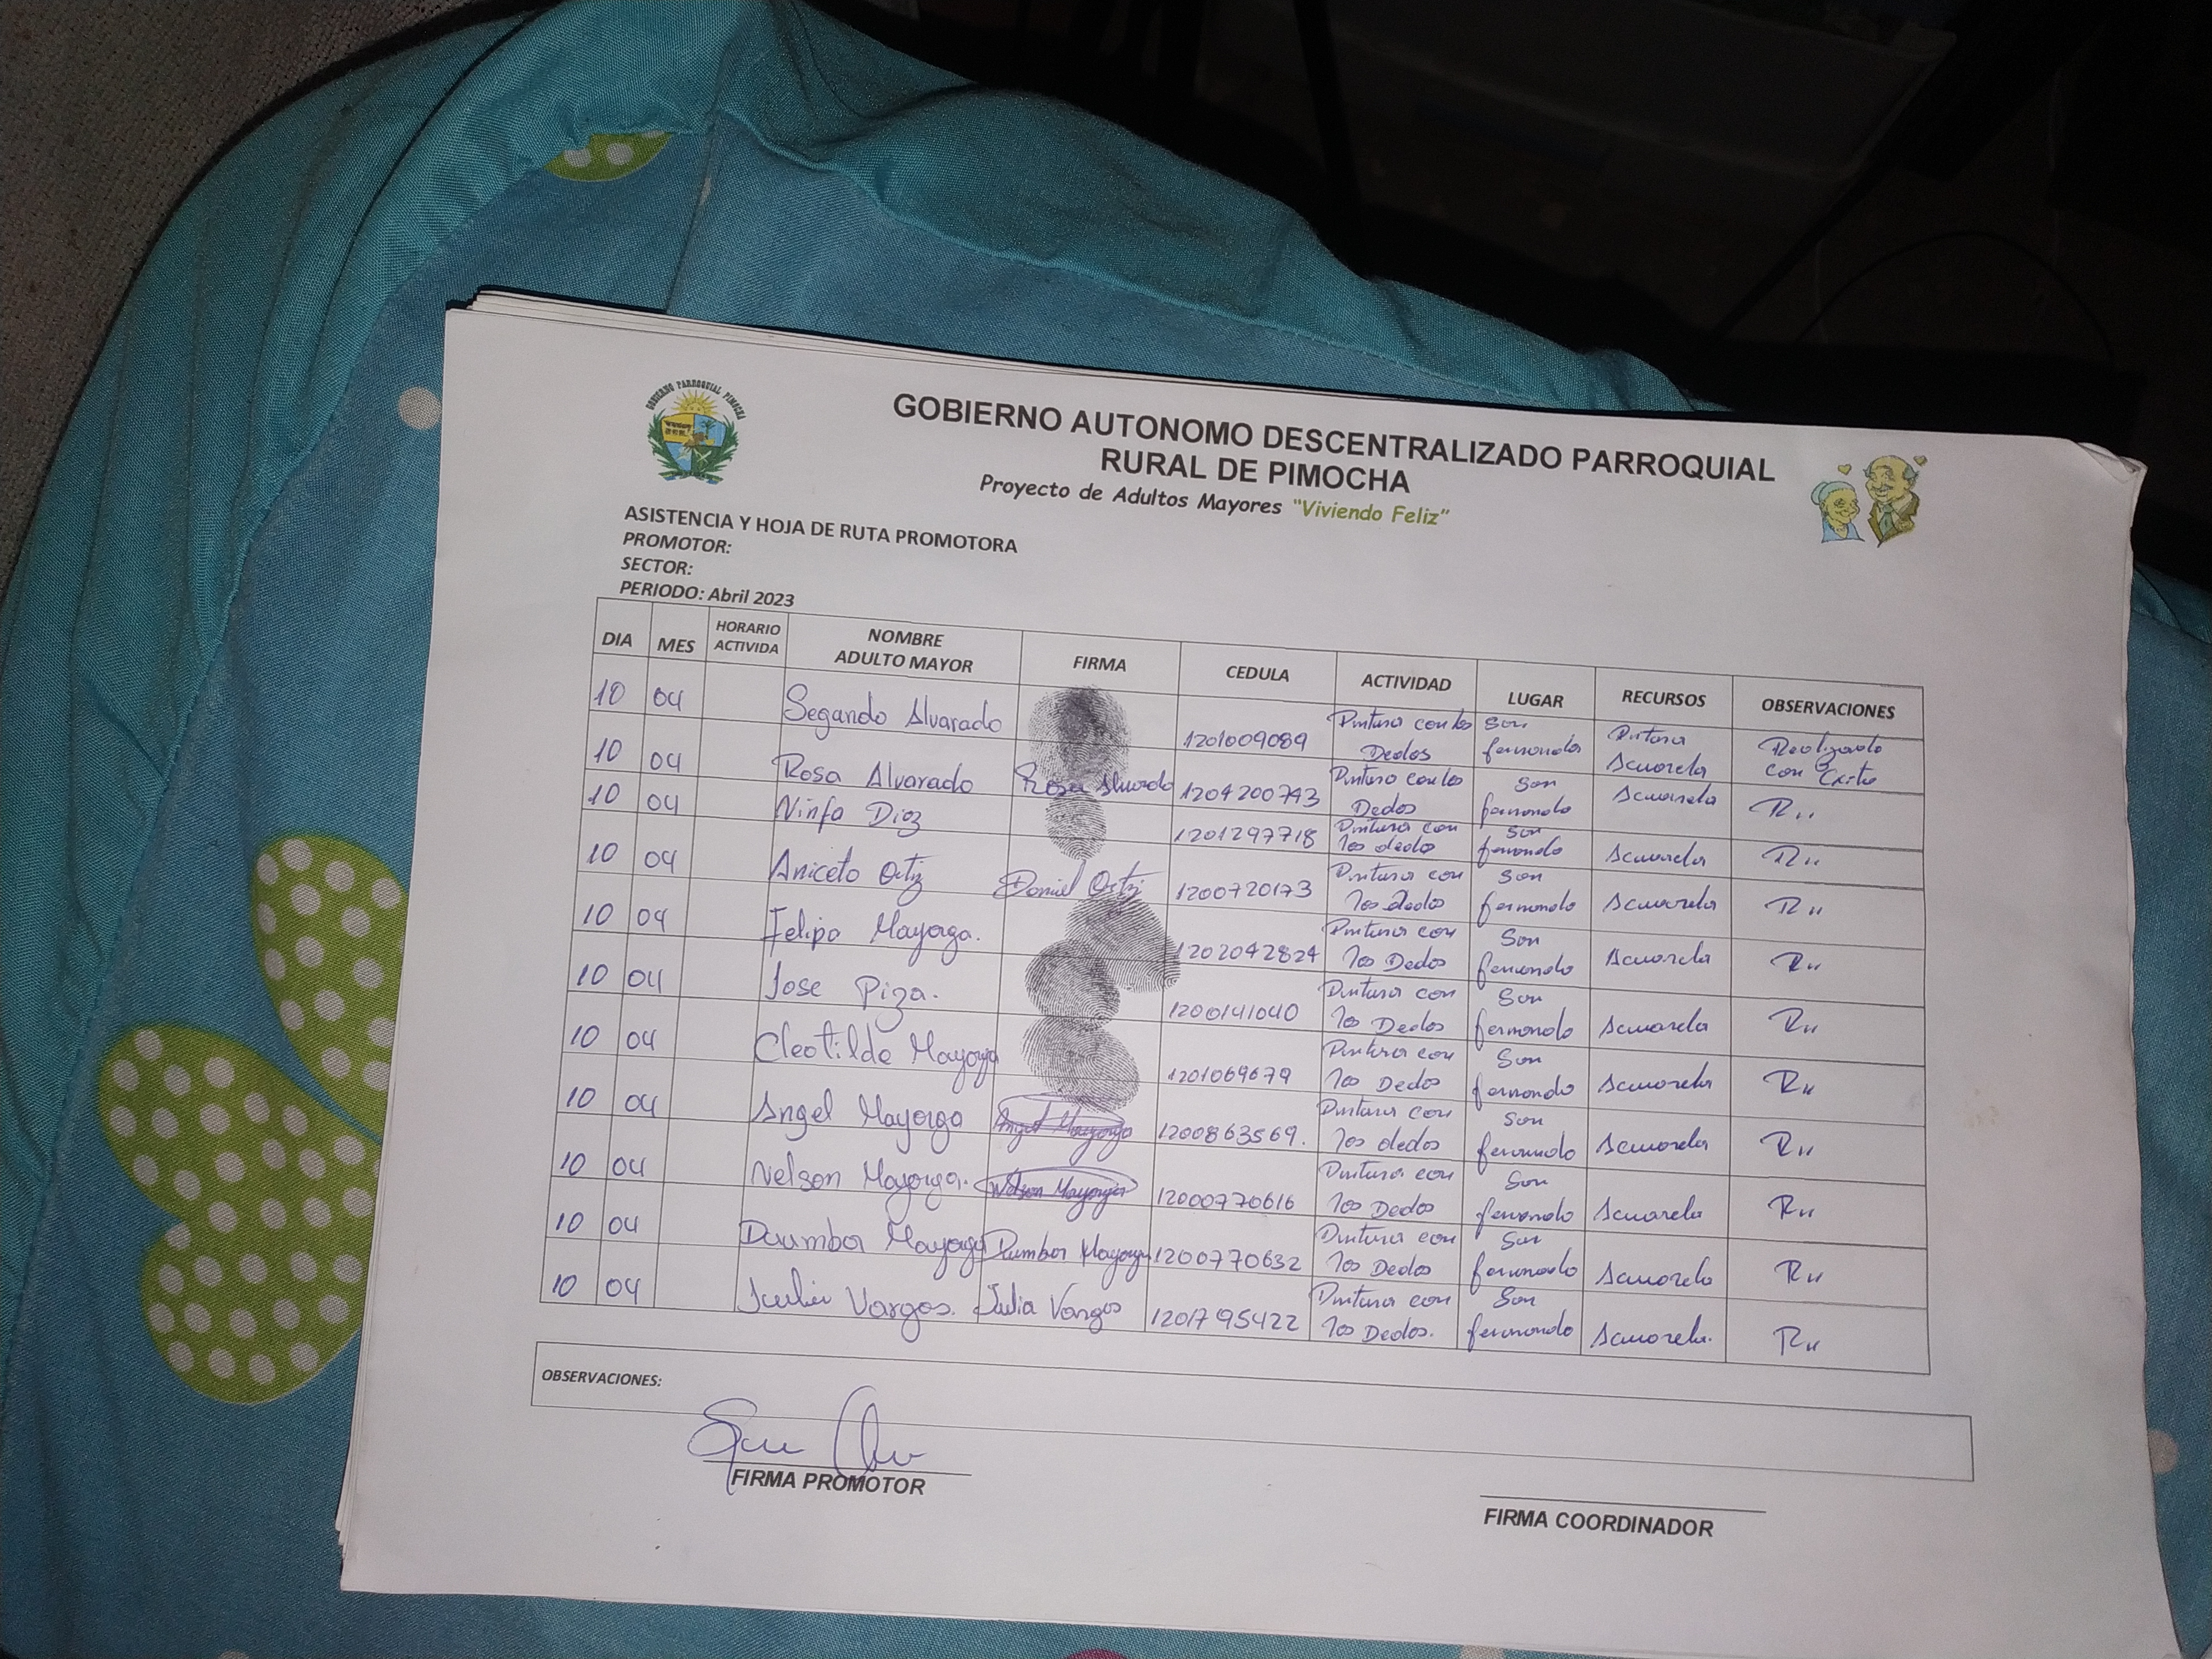 GOBIERNO PARROQUIAL PIMOCHA
GOBIERNO AUTONOMO DESCENTRALIZADO PARROQUIAL
RURAL DE PIMOCHA
Proyecto de Adultos Mayores "Viviendo Feliz"
ASISTENCIA Y HOJA DE RUTA PROMOTORA
PROMOTOR:
SECTOR:
PERIODO: Abril 2023
DIA MES HORARIO ACTIVIDA NOMBRE ADULTO MAYOR FIRMA CEDULA ACTIVIDAD LUGAR RECURSOS OBSERVACIONES
10 04 Segando Alvarado 1201009089 Pintura con los Dedos San fernando Pintura Acuarela Realizado con Exito
10 04 Rosa Alvarado Rosa Alvarado 1204200743 Pintura con los Dedos San fernando Acuarela R,,
10 04 Ninfa Diaz 1201297718 Pintura con los dedo San fernando Acuarela R,,
10 04 Aniceto Ortiz Daniel Ortiz 1200720173 Pintura con los dedos San fernando Acuarela R,,
10 04 Felipa Mayorga. 1202042824 Pintura con los Dedos San fernando Acuarela R,,
10 04 Jose Piza. 1200141040 Pintura con los Dedos San fernando Acuarela R,,
10 04 Cleotilde Mayorga 1201069679 Pintura con los Dedos San fernando Acuarela R,,
10 04 Angel Mayorga Angel Mayorga 1200863569. Pintura con los dedos San fernando Acuarela R,,
10 04 Nelson Mayorga. Nelson Mayorga 12000770616 Pintura con los Dedos San fernando Acuarela R,,
10 04 Daumbor Mayorga Dumbor Mayorga 1200770632 Pintura con los Dedos San fernando Acuarela R,,
10 04 Julia Vargas. Julia Vargas 1201795422 Pintura con los Dedos. San fernando Acuarela. R,,
OBSERVACIONES:
FIRMA PROMOTOR
FIRMA COORDINADOR